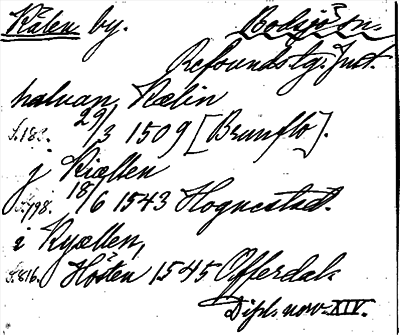 Kälen by. Rödsjö sn.
Refsunds tg. Jmt.
halvan Kælin
s. 182. 29/3 1509 [Brunflo].
j Kiællen
s. 198. 18/6 1543 Hognestad.
i Kyællen,
s. 816. Hösten 1545 Offerdal.
Dipl. norv. XIV.